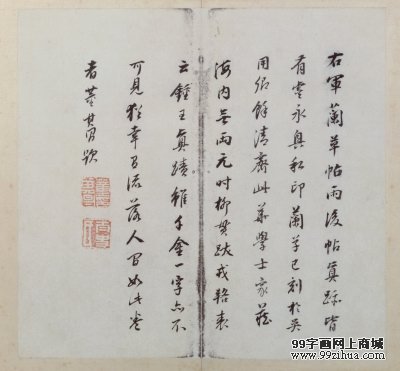 右軍蘭草帖雨後帖真跡皆
有虞永興私印蘭草已刻於吳
用卿餘清齋此華學士家藏
海内無兩元時柳貫跋戎輅表
云鍾王真蹟雖千金一字亦不
可見猶幸有流落人間如此卷
者董其昌題
99字画网上商城
www.99zihua.com